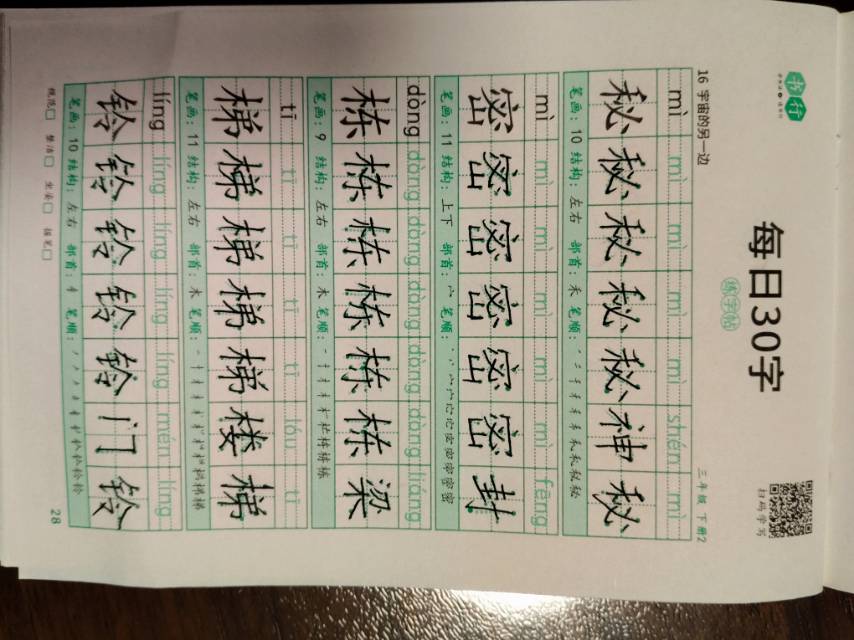 书行
每日30字
练字帖
扫码学写
16 宇宙的另一边
三年级 下册2
mì mì mì mì mì shén mì
秘 秘 秘 秘 秘 神 秘
笔画：10 结构：左右 部首：禾 笔顺：
mì mì mì mì mì mì fēng
密 密 密 密 密 密 封
笔画：11 结构：上下 部首：宀 笔顺：
dòng dòng dòng dòng dòng dòng liáng
栋 栋 栋 栋 栋 栋 梁
笔画：9 结构：左右 部首：木 笔顺：
tī tī tī tī tī lóu tī
梯 梯 梯 梯 梯 楼 梯
笔画：11 结构：左右 部首：木 笔顺：
líng líng líng líng líng mén líng
铃 铃 铃 铃 铃 门 铃
笔画：10 结构：左右 部首：钅 笔顺：
规范 整洁 坐姿 握笔
28